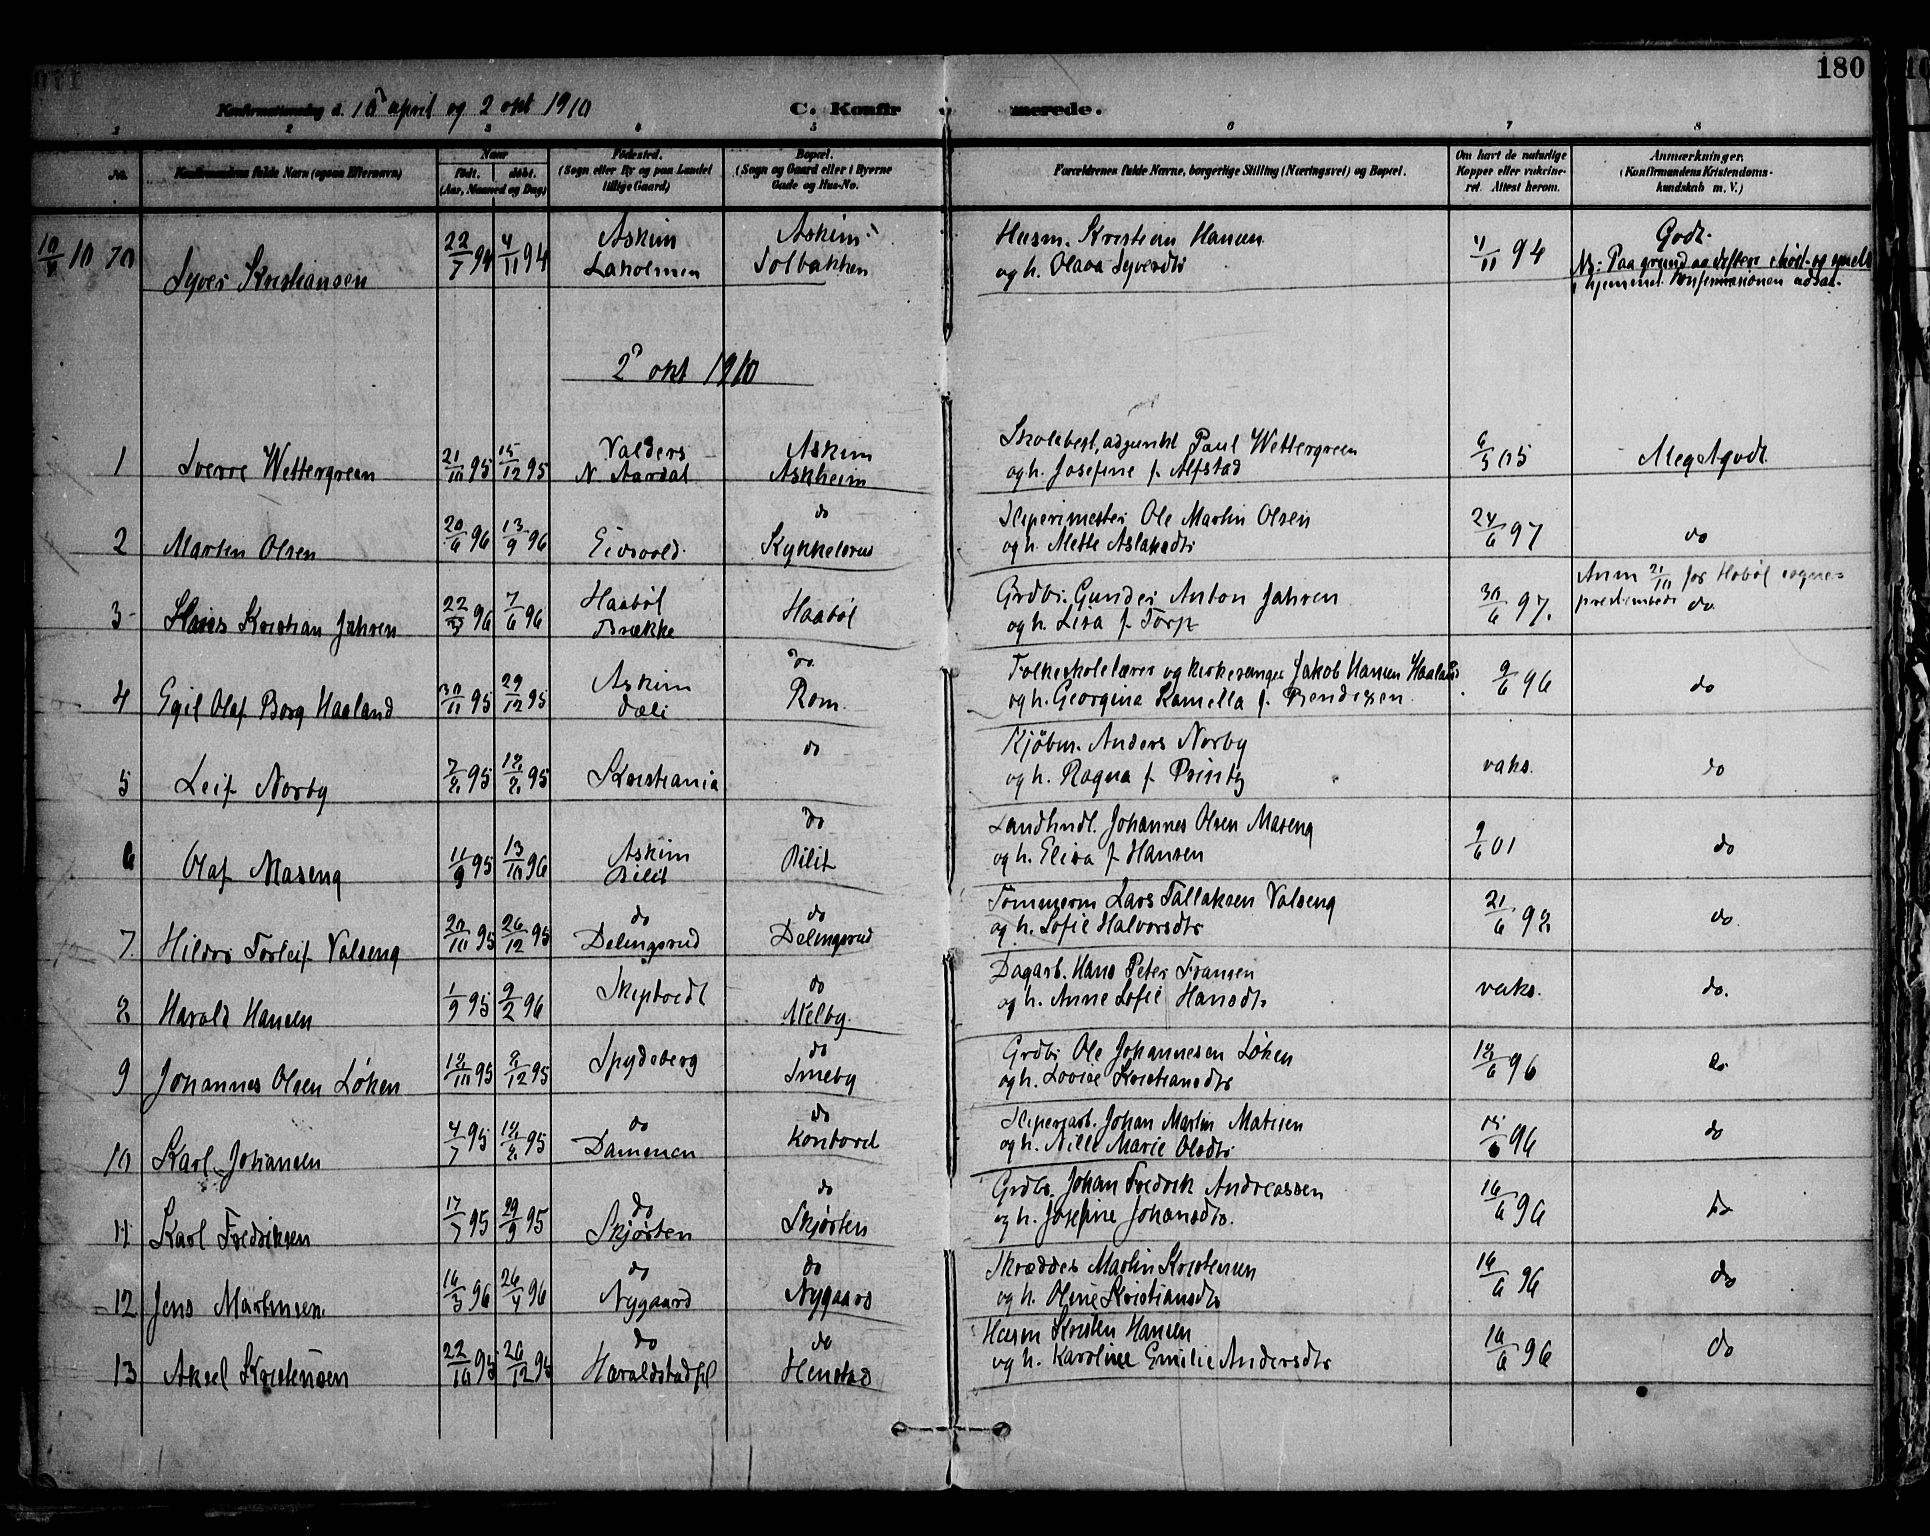 180
Konfirmationsdag d. 10 april og 2 okt 1910 C. Konfirmerede.
1 2 3 4 5 6 7 8
No. Konfirmandens fulde Navn (ogsaa Efternavn) Naar født. døbt. (Aar, Maaned og Dag) Fødested. (Sogn eller By og paa Landet tillige Gaard) Bopæl. (Sogn og Gaard eller i Byerne Gade og Hus-No.) Forældrenes fulde Navne, borgerlige Stilling (Næringsvei) og Bopæl. Om havt de naturlige Kopper eller vakcineret. Attest herom. Anmærkninger. (Konfirmandens Kristendomskundskab m. V.)
10/4 10 70 Syver Kristiansen 22/7 94 4/11 94 Askim Laholmen Askim Solbakken
Husm. Kristian Hansen 11/11 94 Godt.
og h. Olava Syversdtr NB: Paa grund af difteri
i hjemmet Konfirmasionen udsat.
2 okt 1910
1 Sverre Wettergreen 21/10 95 15/12 95 Valders N. Aurdal Askim Askheim
Skolebest, adjunkt Paul Wettergreen 6/5 05 Meget godt.
og h. Josefine f. Alfstad
2 Martin Olsen 20/6 96 13/9 96 Eidsvold do Kykkelsrud
Sliperimester Ole Martin Olsen 24/6 97 do
og h. Mette Aslaksdtr
3 Hans Kristian Jahren 22/3 96 7/6 96 Haabøl Brække Haabøl
Grdbr. Gunder Anton Jahren 30/6 97. Anm 21/10 for Hobøl sogneprestembede do
og h. Lisa f. Torp
4 Egil Olaf Borg Haaland 30/11 95 29/12 95 Askim Dæli do Rom.
Folkeskolelærer og kirkesanger Jakob Hansen Haaland 9/6 96 do
og h. Georgina Kamella f. Bendixen
5 Leif Norby 7/6 95 18/8 95 Kristiania do
Kjøbm. Anders Norby vaks. do
og h. Ragna f. Prinby
6 Olaf Maseng 11/9 95 13/10 96 Askim Pilit do Pilit
Landhndl. Johannes Olsen Maseng 9/6 01 do
og h. Elisa f. Hansen
7. Hildor Torleif Valseng 20/10 95 26/12 95 do Delingsrud do Delingsrud
Tømmerm Lars Tallaksen Valseng 21/6 98 do.
og h. Sofie Halvorsdtr
8 Harald Hansen 1/9 95 9/2 96 Skiptvedt do Melby.
Dagarb. Hans Peter Fransen vaks. do.
og h. Anne Sofie Hansdtr
9 Johannes Olsen Løken 18/10 95 8/12 95 Spydeberg do Smeby
Grdbr Ole Johannesen Løken 18/6 96 do
og h. Lovise Kristiansdtr
10 Karl Johansen 4/7 95 18/8 95 do Dammen do Kontoret
Sliperiarb. Johan Martin Matisen 15/6 96 do
og h. Nille Marie Olsdtr
11 Karl Fredriksen 17/7 95 29/9 95 do Skjørten do Skjørten
Grdbr. Johan Fredrik Andreassen 16/6 96 do
og h. Josefine Johansdtr.
12 Jens Martinsen 16/3 96 26/4 96 do Nygaard do Nygaard
Skrædder Martin Kristensen 16/6 96 do
og h. Oline Kristiansdtr
13 Aksel Kristensen 22/10 95 26/12 95 do Haraldstadpl do Henstad
Husm Kristen Hansen 16/6 96 do
og h. Karoline Emilie Andersdtr